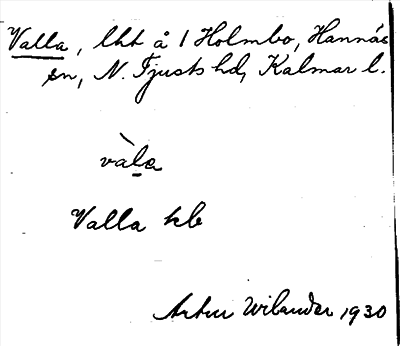 Valla, lht å 1 Holmbo, Hannäs
sn, N. Tjusts hd, Kalmar l.
vàl̠a
Valla kb
Artur Wilander 1930